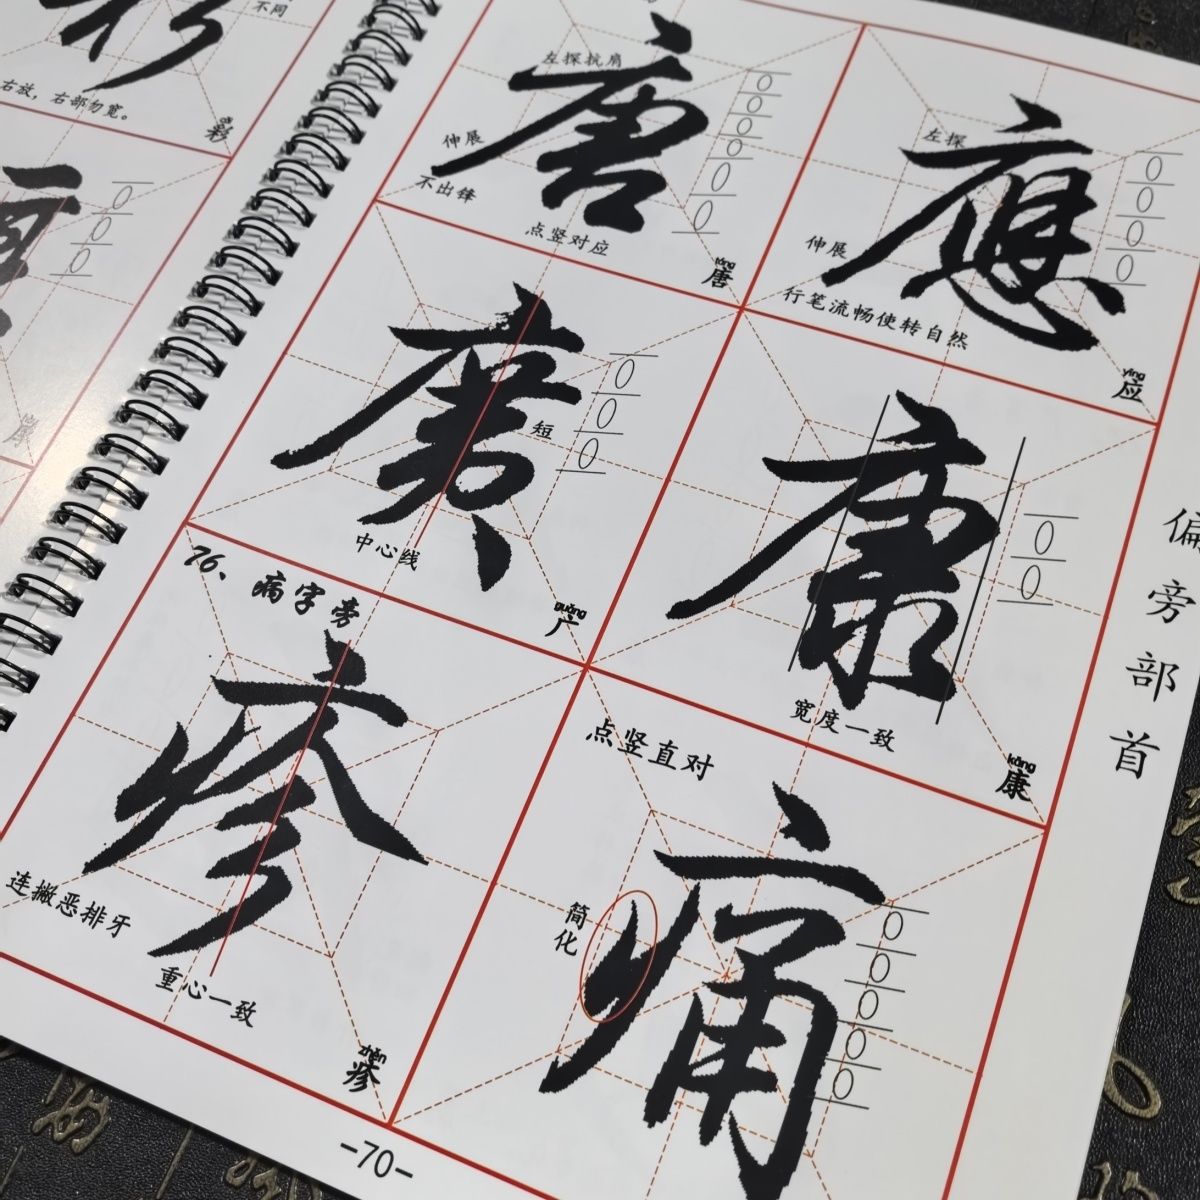 不同
右放，右部勿宽。
彩
左探抗肩
唐
伸展
不出锋
点竖对应
táng
唐
左探
應
伸展
行笔流畅使转自然
yīng
应
廣
短
中心线
guǎng
广
康
宽度一致
kāng
康
76、病字旁
疹
连撇恶排牙
重心一致
zhěn
疹
点竖直对
痛
简化
偏旁部首
-70-